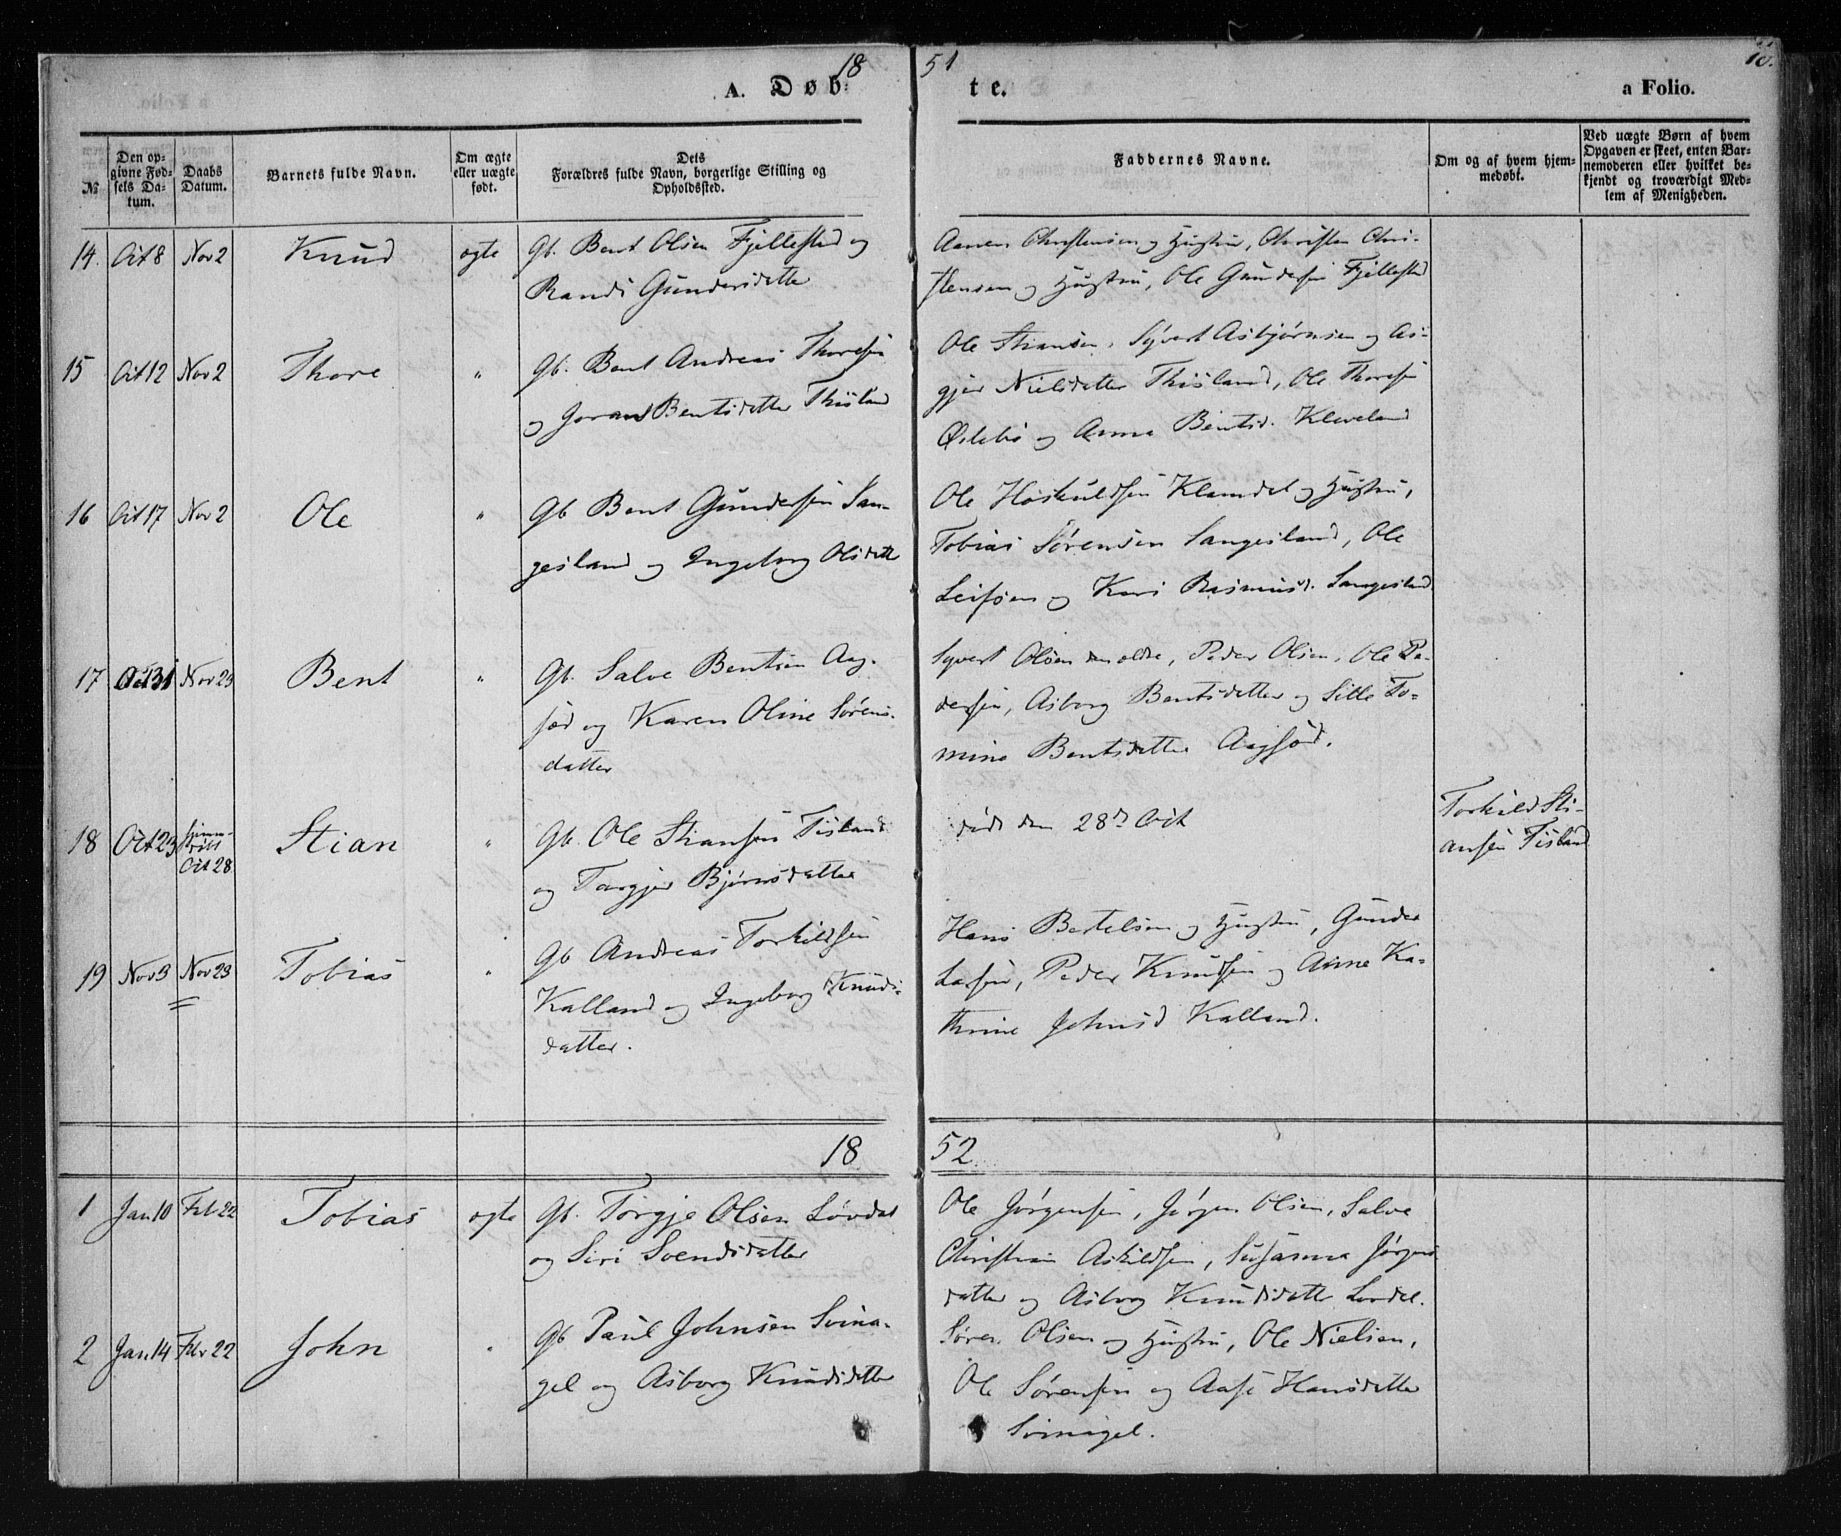 18 51
A. Døb- te. a Folio.
№
Den op-
givne Fød-
sels Da-
tum.
Daabs
Datum.
Barnets fulde Navn.
Om ægte
eller uægte
født.
Dets
Forældres fulde Navn, borgerlige Stilling og
Opholdssted.
Faddernes Navne.
Om og af hvem hjem-
medøbt.
Ved uægte Børn af hvem
Opgaven er skeet, enten Bar-
nemoderen eller hvilket be-
kjendt og troværdigt Med-
lem af Menigheden.
14. Oct 8 Nov 2 Knud ægte Gb. Bent Olsen Fjellestad og
Randi Gundersdatter
Christensen og Hustru, Christen Chri-
stensen og Hustru, Ole Gundersen Fjellestad
15 Oct 12 Nov 2 Thore " Gb. Bent Andreas Thoresen
og Joran Bentsdatter Thisland
Ole Stiansen, Syvert Asbjørnsen og As-
gjer Nielsdatter Thisland, Ole Thoresen
Øslebø og Anna Bentsd. Kleveland
16 Oct 17 Nov 2 Ole " Gb Bent Gundersen San-
gesland og Ingeborg Olsdatt
Ole Høskuldsen Klamdal og Hustru,
Tobias Sørensen Sangesland, Ole
Leifsen og Kari Rasmusd. Sangesland
17 Oct 31 Nov 23 Bent " Gb. Salve Bentsen Aag-
sød og Karen Oline Sørens-
datter
Syvert Olsen den ældre, Peder Olsen, Ole Pe-
dersen, Asborg Bentsdatter og Sille To-
mine Bentsdatter Aagsød.
18 Oct 23 hjemme-
døbt
Oct 28 Stian " Gb. Ole Stiansen Tisland
og Torgjer Bjørnsdatter
død den 28de Oct
Torkild Sti-
ansen Tisland
19 Nov 3 Nov 23 Tobias " Gb Andreas Torkildsen
Kalland og Ingeborg Knuds-
datter.
Hans Bertelsen og Hustru, Gunder
Larsen, Peder Knudsen og Anne Ka-
thrine Johnsd Kalland.
18 52
1 Jan 10 Feb 22 Tobias ægte Gb. Torgje Olsen Løvdal
og Siri Svendsdatter
Ole Jørgensen, Jørgen Olsen, Salve
Christian Askildsen, Susanna Jørgens
datter og Asborg Knudsdatter Løvdal.
2 Jan 14 Febr 22 John " Gb Paul Johnsen Svina-
gel og Asborg Knudsdatter
Søren Olsen og Hustru, Ole Nielsen,
Ole Sørensen og Aase Hansdatter
Svinagel.